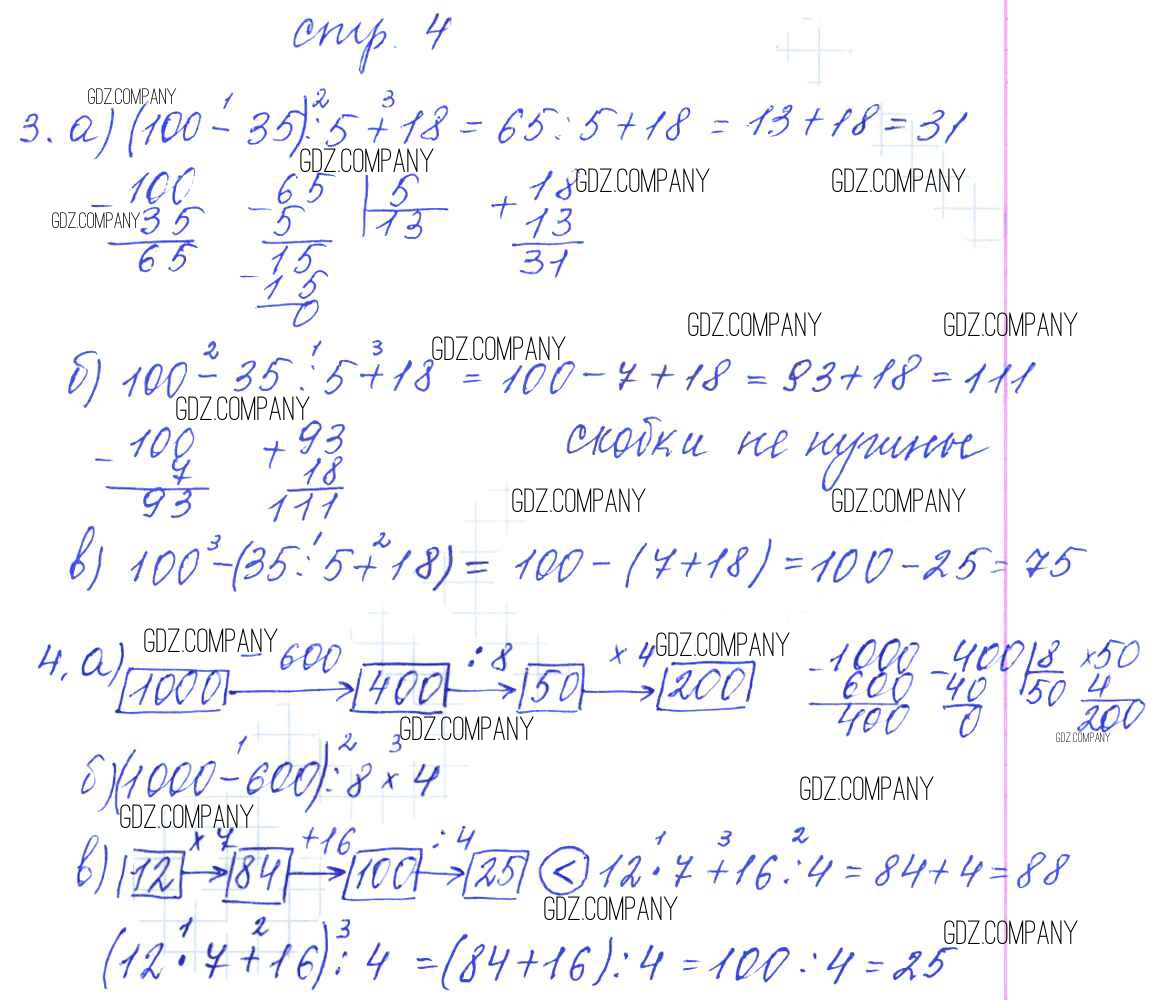 стр. 4
GDZ.COMPANY
1 2 3
3. а) (100 - 35) : 5 + 18 = 65 : 5 + 18 = 13 + 18 = 31
GDZ.COMPANY GDZ.COMPANY GDZ.COMPANY
- 100 - 65 | 5 + 18
GDZ.COMPANY 35 5 13 13
65 15 31
- 15
0
GDZ.COMPANY GDZ.COMPANY
2 1 3 GDZ.COMPANY
б) 100 - 35 : 5 + 18 = 100 - 7 + 18 = 93 + 18 = 111
GDZ.COMPANY
- 100 + 93 скобки не нужны
7 18
93 111 GDZ.COMPANY GDZ.COMPANY
3 1 2
в) 100 - (35 : 5 + 18) = 100 - (7 + 18) = 100 - 25 = 75
GDZ.COMPANY GDZ.COMPANY
- 600 : 8 × 4
4. а) 1000 → 400 → 50 → 200 - 1000 - 400 | 8 × 50
600 40 50 4
400 0 200
GDZ.COMPANY GDZ.COMPANY
1 2 3
б) (1000 - 600) : 8 × 4
GDZ.COMPANY GDZ.COMPANY
× 7 + 16 : 4 1 3 2
в) 12 → 84 → 100 → 25 < 12 · 7 + 16 : 4 = 84 + 4 = 88
GDZ.COMPANY
1 2 3 GDZ.COMPANY
(12 · 7 + 16) : 4 = (84 + 16) : 4 = 100 : 4 = 25